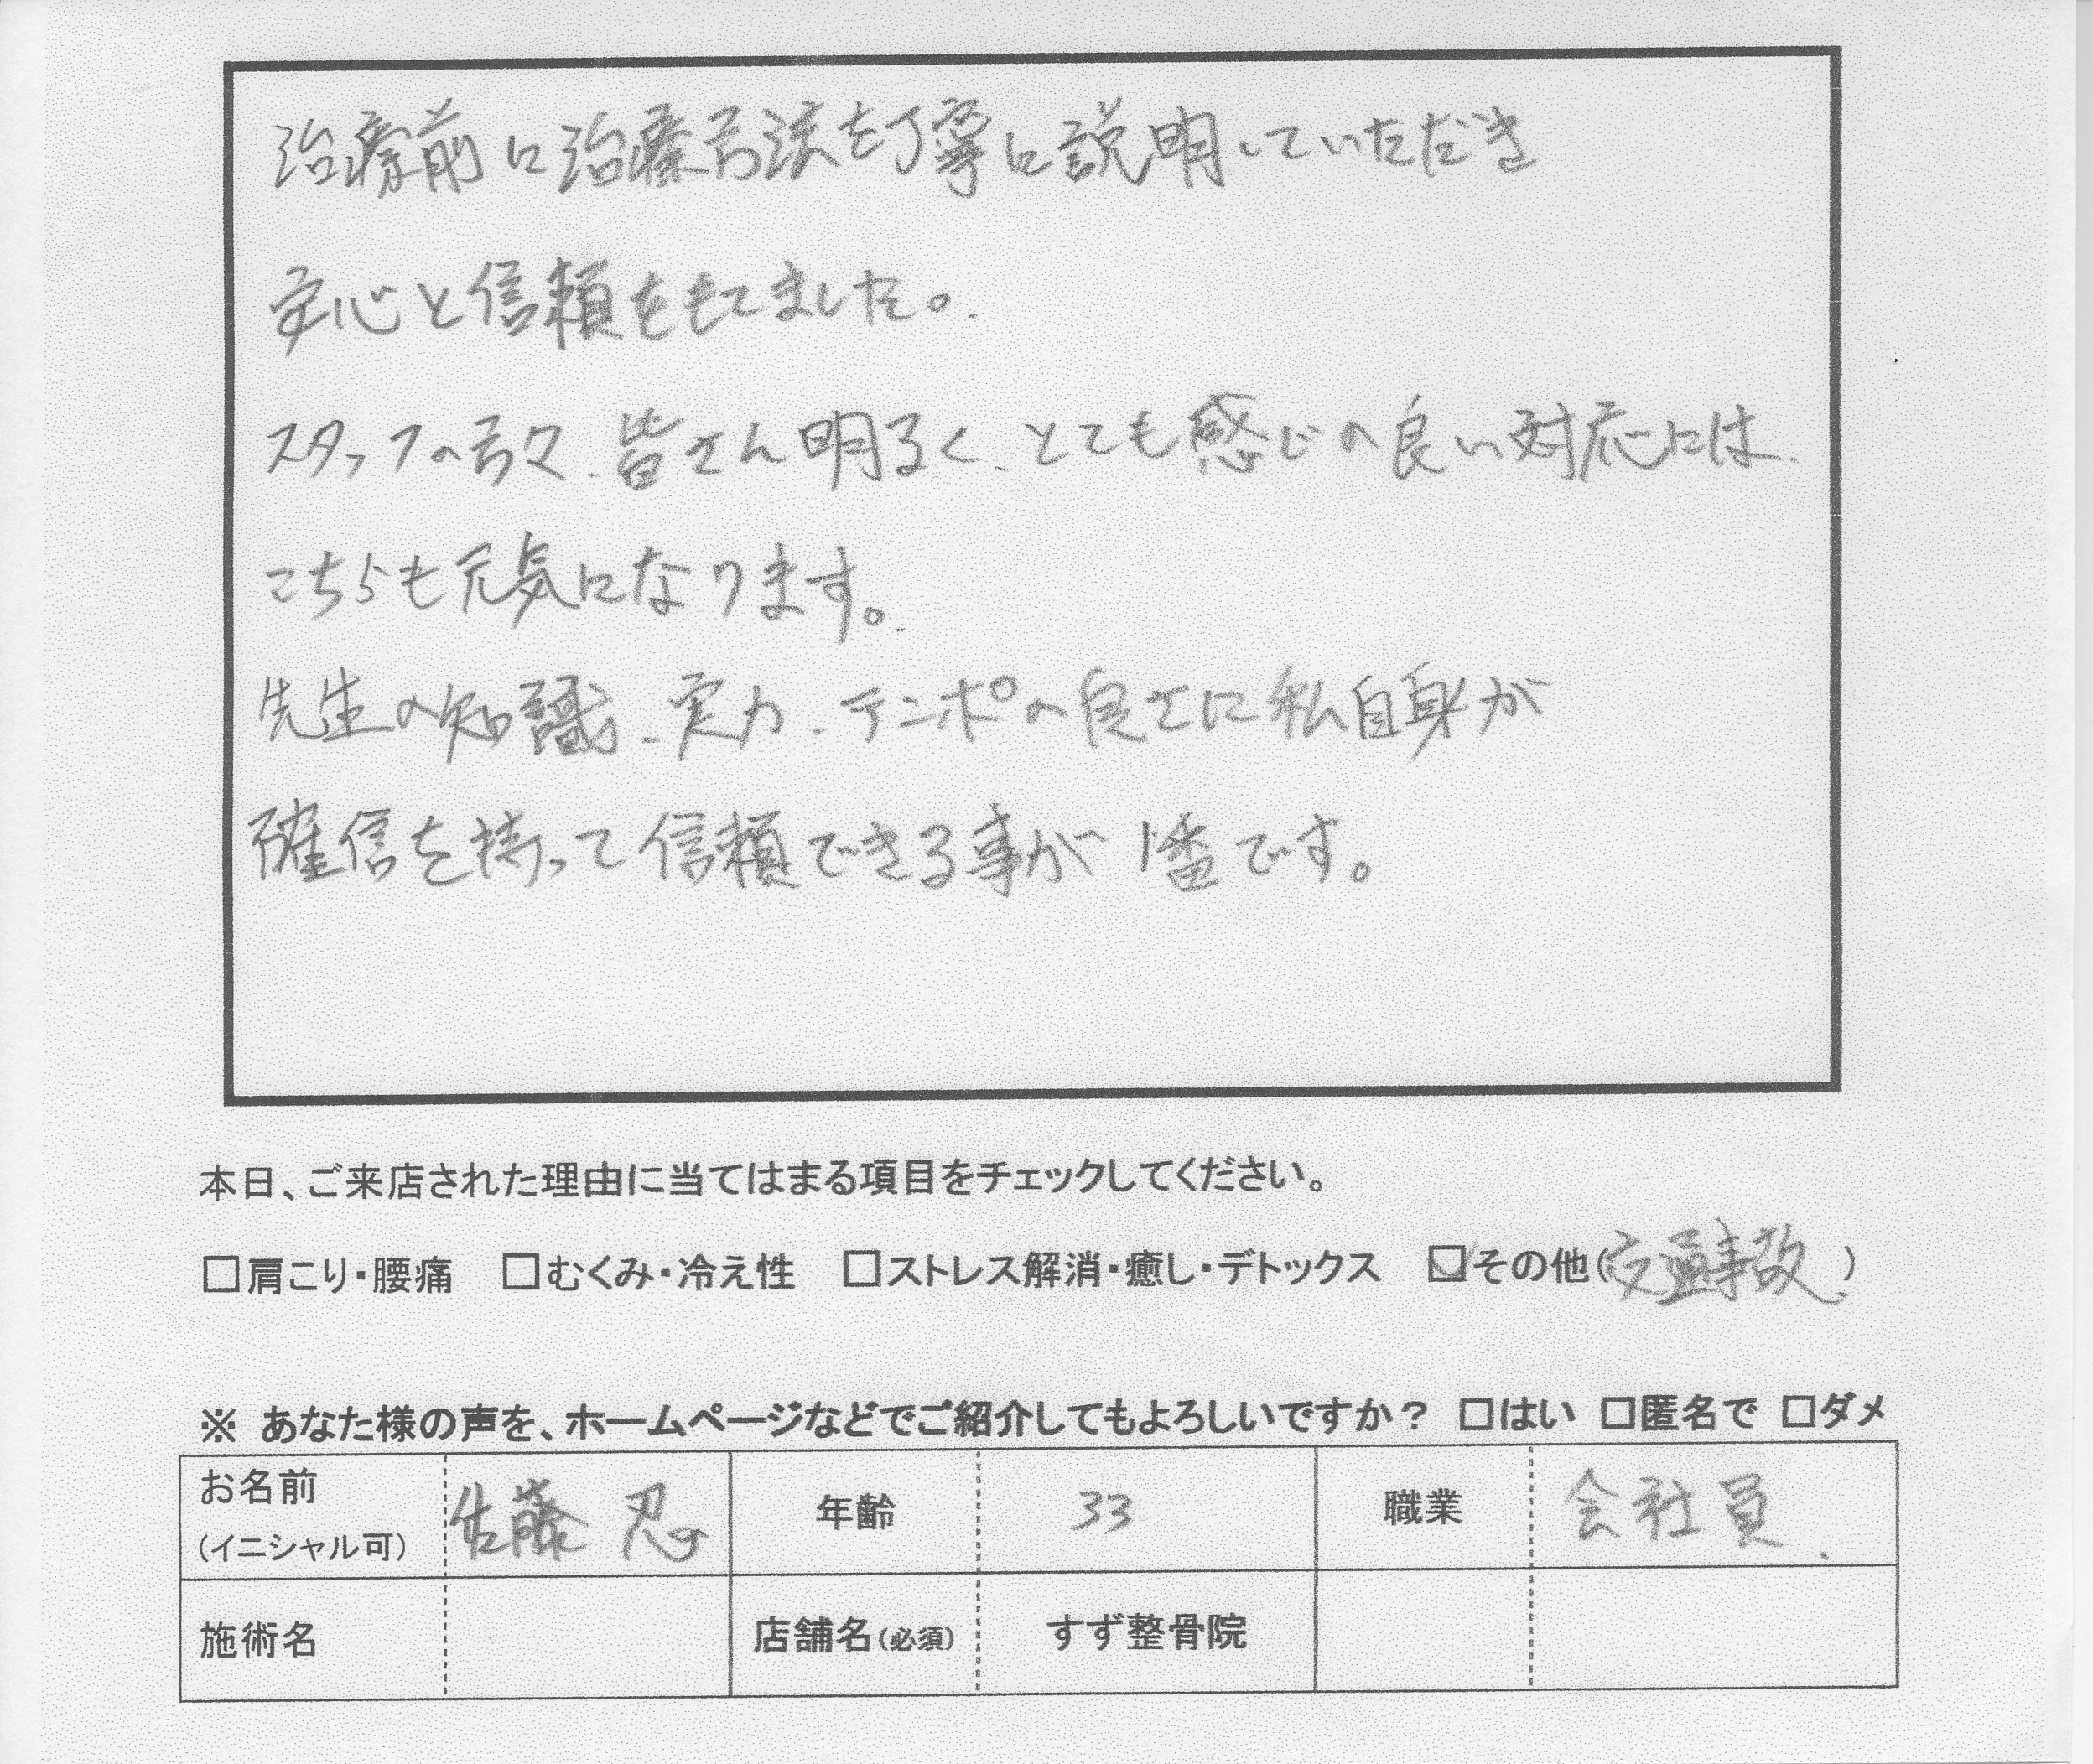 治療前に治療方法を丁寧に説明していただき
安心と信頼をもてました。
スタッフの方々、皆さん明るく、とても感じの良い対応には、
こちらも元気になります。
先生の知識、実力、テンポの良さに私自身が
確信を持って信頼できる事が1番です。
本日、ご来店された理由に当てはまる項目をチェックしてください。
□肩こり・腰痛 □むくみ・冷え性 □ストレス解消・癒し・デトックス ☑その他(交通事故)
※ あなた様の声を、ホームページなどでご紹介してもよろしいですか? □はい □匿名で □ダメ
お名前 (イニシャル可) 佐藤 忍 年齢 33 職業 会社員
施術名 店舗名(必須) すず整骨院